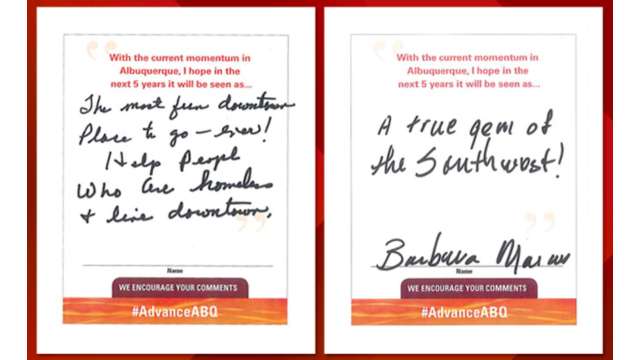 With the current momentum in
Albuquerque, I hope in the
next 5 years it will be seen as...
The most fun downtown
Place to go - ever!
Help People
Who are homeless
& live downtown.
Name
WE ENCOURAGE YOUR COMMENTS
#AdvanceABQ
With the current momentum in
Albuquerque, I hope in the
next 5 years it will be seen as...
A true gem of
the Southwest!
Barbara
Name
WE ENCOURAGE YOUR COMMENTS
#AdvanceABQ